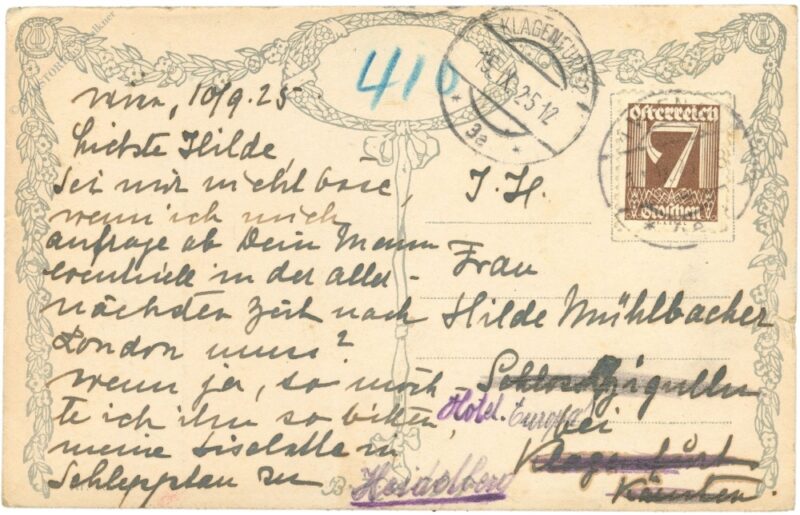 Wien, 10/9.25
Liebste Hilde,
Sei mir nicht böse,
wenn ich mich
anfrage ob Dein Mann
eventuell in der aller-
nächsten Zeit nach
London muss?
Wenn ja, so möch-
te ich ihn so bitten,
meine Liselotte in
Schlepptau zu
416
KLAGENFURT 2
15.IX.25 12
* 3a *
Österreich
7
Groschen
Frau
Hilde Mühlbacher
Schloss
bei
Klagenfurt
Kärnten.
Hotel Europa
Heidelberg
B.